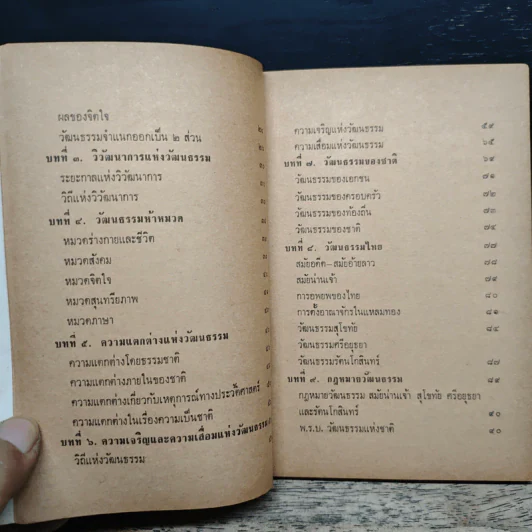 ผลของจิตใจ
วัฒนธรรมจำแนกออกเป็น ๒ ส่วน
บทที่ ๓. วิวัฒนาการแห่งวัฒนธรรม
ระยะกาลแห่งวิวัฒนาการ
วิถีแห่งวิวัฒนาการ
บทที่ ๔. วัฒนธรรมห้าหมวด
หมวดร่างกายและชีวิต
หมวดสังคม
หมวดจิตใจ
หมวดสุนทรียภาพ
หมวดภาษา
บทที่ ๕. ความแตกต่างแห่งวัฒนธรรม
ความแตกต่างโดยธรรมชาติ
ความแตกต่างภายในของชาติ
ความแตกต่างเกี่ยวกับเหตุการณ์ทางประวัติศาสตร์
ความแตกต่างในเรื่องความเป็นชาติ
บทที่ ๖. ความเจริญและความเสื่อมแห่งวัฒนธรรม
วิถีแห่งวัฒนธรรม
ความเจริญแห่งวัฒนธรรม
ความเสื่อมแห่งวัฒนธรรม ๖๕
บทที่ ๗. วัฒนธรรมของชาติ
วัฒนธรรมของเอกชน ๗๑
วัฒนธรรมของครอบครัว
วัฒนธรรมของท้องถิ่น
วัฒนธรรมของชาติ
บทที่ ๘. วัฒนธรรมไทย ๗๗
สมัยอดีต–สมัยอ้ายลาว
สมัยน่านเจ้า
การอพยพของไทย ๘๐
การตั้งอาณาจักรในแหลมทอง ๘๑
วัฒนธรรมสุโขทัย
วัฒนธรรมศรีอยุธยา
วัฒนธรรมรัตนโกสินทร์ ๘๗
บทที่ ๙. กฎหมายวัฒนธรรม
กฎหมายวัฒนธรรม สมัยน่านเจ้า สุโขทัย ศรีอยุธยา
และรัตนโกสินทร์ ๙๐
พ.ร.บ. วัฒนธรรมแห่งชาติ ๙๐